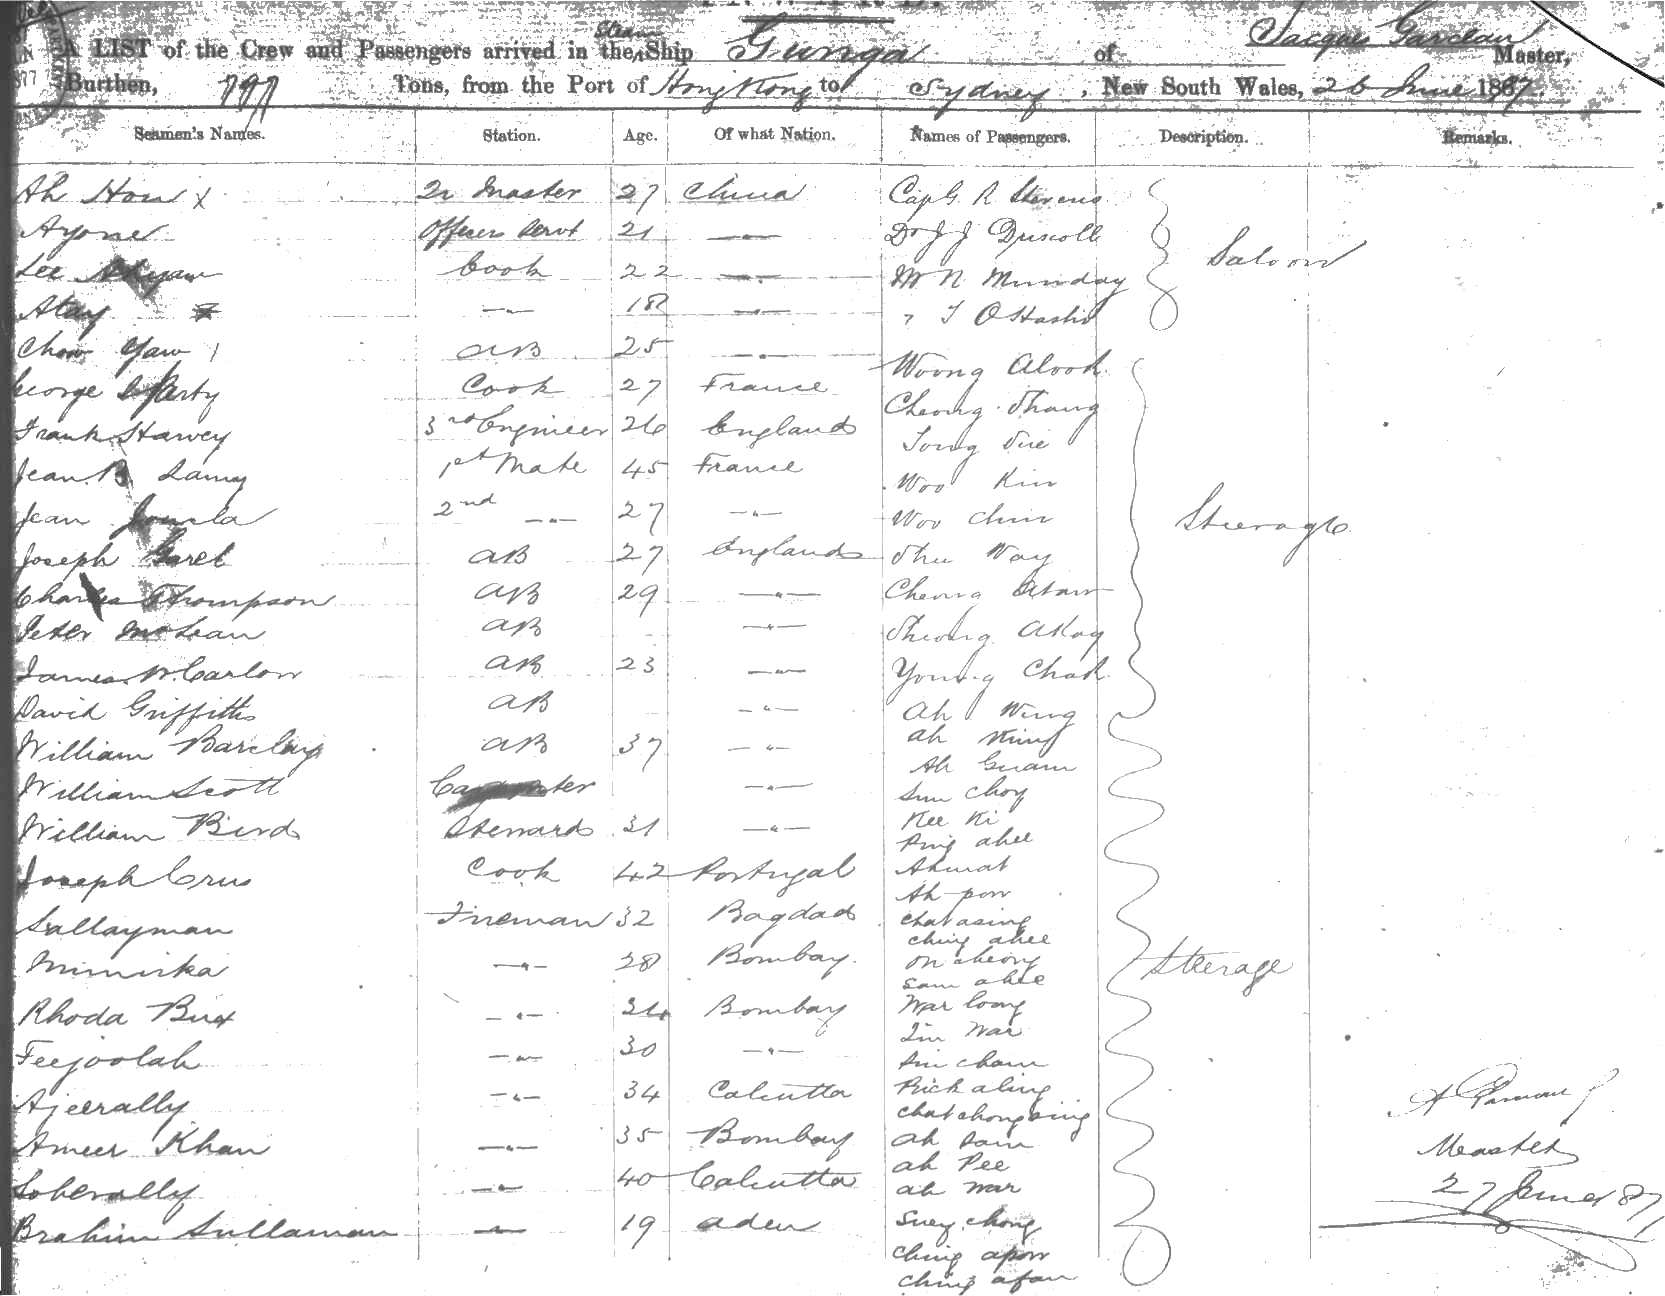 A LIST of the Crew and Passengers arrived in the Steam Ship Gunga of Jacques Master,
Burthen, 797 Tons, from the Port of Hong Kong to Sydney, New South Wales, 26 June 1887.
Seamen's Names. Station. Age. Of what Nation. Names of Passengers. Description. Remarks.
Ah How x Qr Master 27 China Capt G R Stevens
Ayone Officers Servt 21 —"— Dr J J Driscoll
Lee Cook 22 —"— Mr N Munday Saloon
Atay —"— 18 —"— " T
Chow Yaw AB 25 —"— Woong Alook
George Cook 27 France Cheong Thang
Frank Harvey 3rd Engineer 26 England Tong Sue
Jean B. Lamy 1st Mate 45 France Woo Kin
Jean 2nd —"— 27 —"— Woo Chin Steerage
Joseph Garel AB 27 England Shu Way
Charles Thompson AB 29 —"— Cheong
Peter McLean AB —"— AKay
James McCarlow AB 23 —"— Young Chak
David Griffiths AB —"— Ah Wing
William Barclay AB 37 —"— Ah King
Ah Guam
William Scott Carpenter —"— Sun Choy
William Bird Steward 31 —"— Kee Ki
Ping ahee
Joseph Crus Cook 42 Portugal Ahmat
Ah pow
Sallayman Fireman 32 Bagdad Chat asing
Ching ahee
Mimirka —"— 28 Bombay. On cheong Steerage
Sam ahee
Rhoda Bux —"— 34 Bombay War loong
Tim War
Feejoolah —"— 30 —"— Sin cham
Ajeerally —"— 34 Calcutta Kick aling
Chat chong sing
Ameer Khan —"— 35 Bombay Ah Sam Master
Ah Pee
Soberally —"— 40 Calcutta Ah War 27 June 87
Brahim Sullaman —"— 19 Aden Suey chong
Ching apow
Ching afan